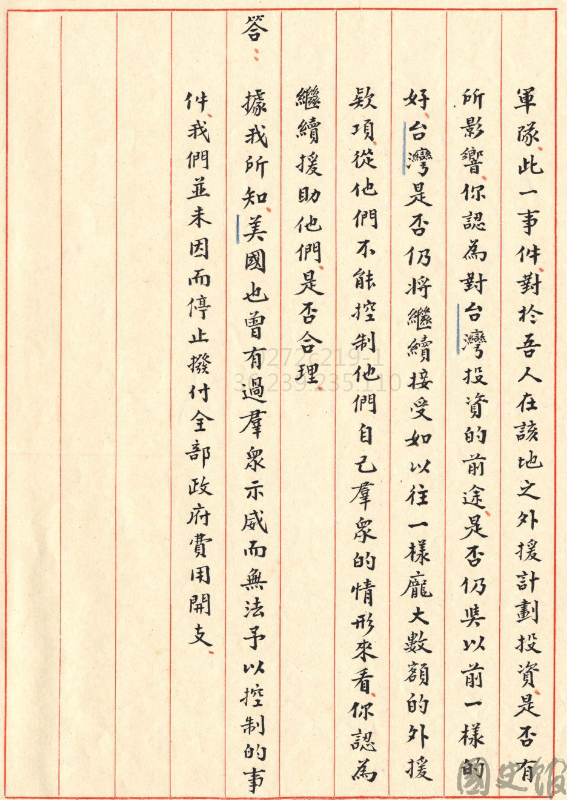 軍隊、此一事件對於吾人在該地之外援計劃投資、是否有
所影響、你認為對台灣投資的前途、是否仍與以前一樣的
好、台灣是否仍將繼續接受如以往一樣龐大數額的外援
款項、從他們不能控制他們自己羣眾的情形來看、你認為
繼續援助他們、是否合理、
答：據我所知、美國也曾有過羣眾示威而無法予以控制的事
件、我們並未因而停止撥付全部政府費用開支、
國史館